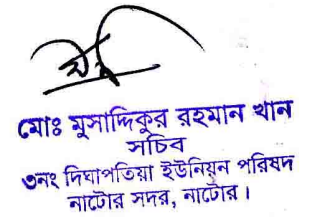 মোঃ মুসাদ্দিকুর রহমান খান
সচিব
৩নং দিঘাপতিয়া ইউনিয়ন পরিষদ
নাটোর সদর, নাটোর।